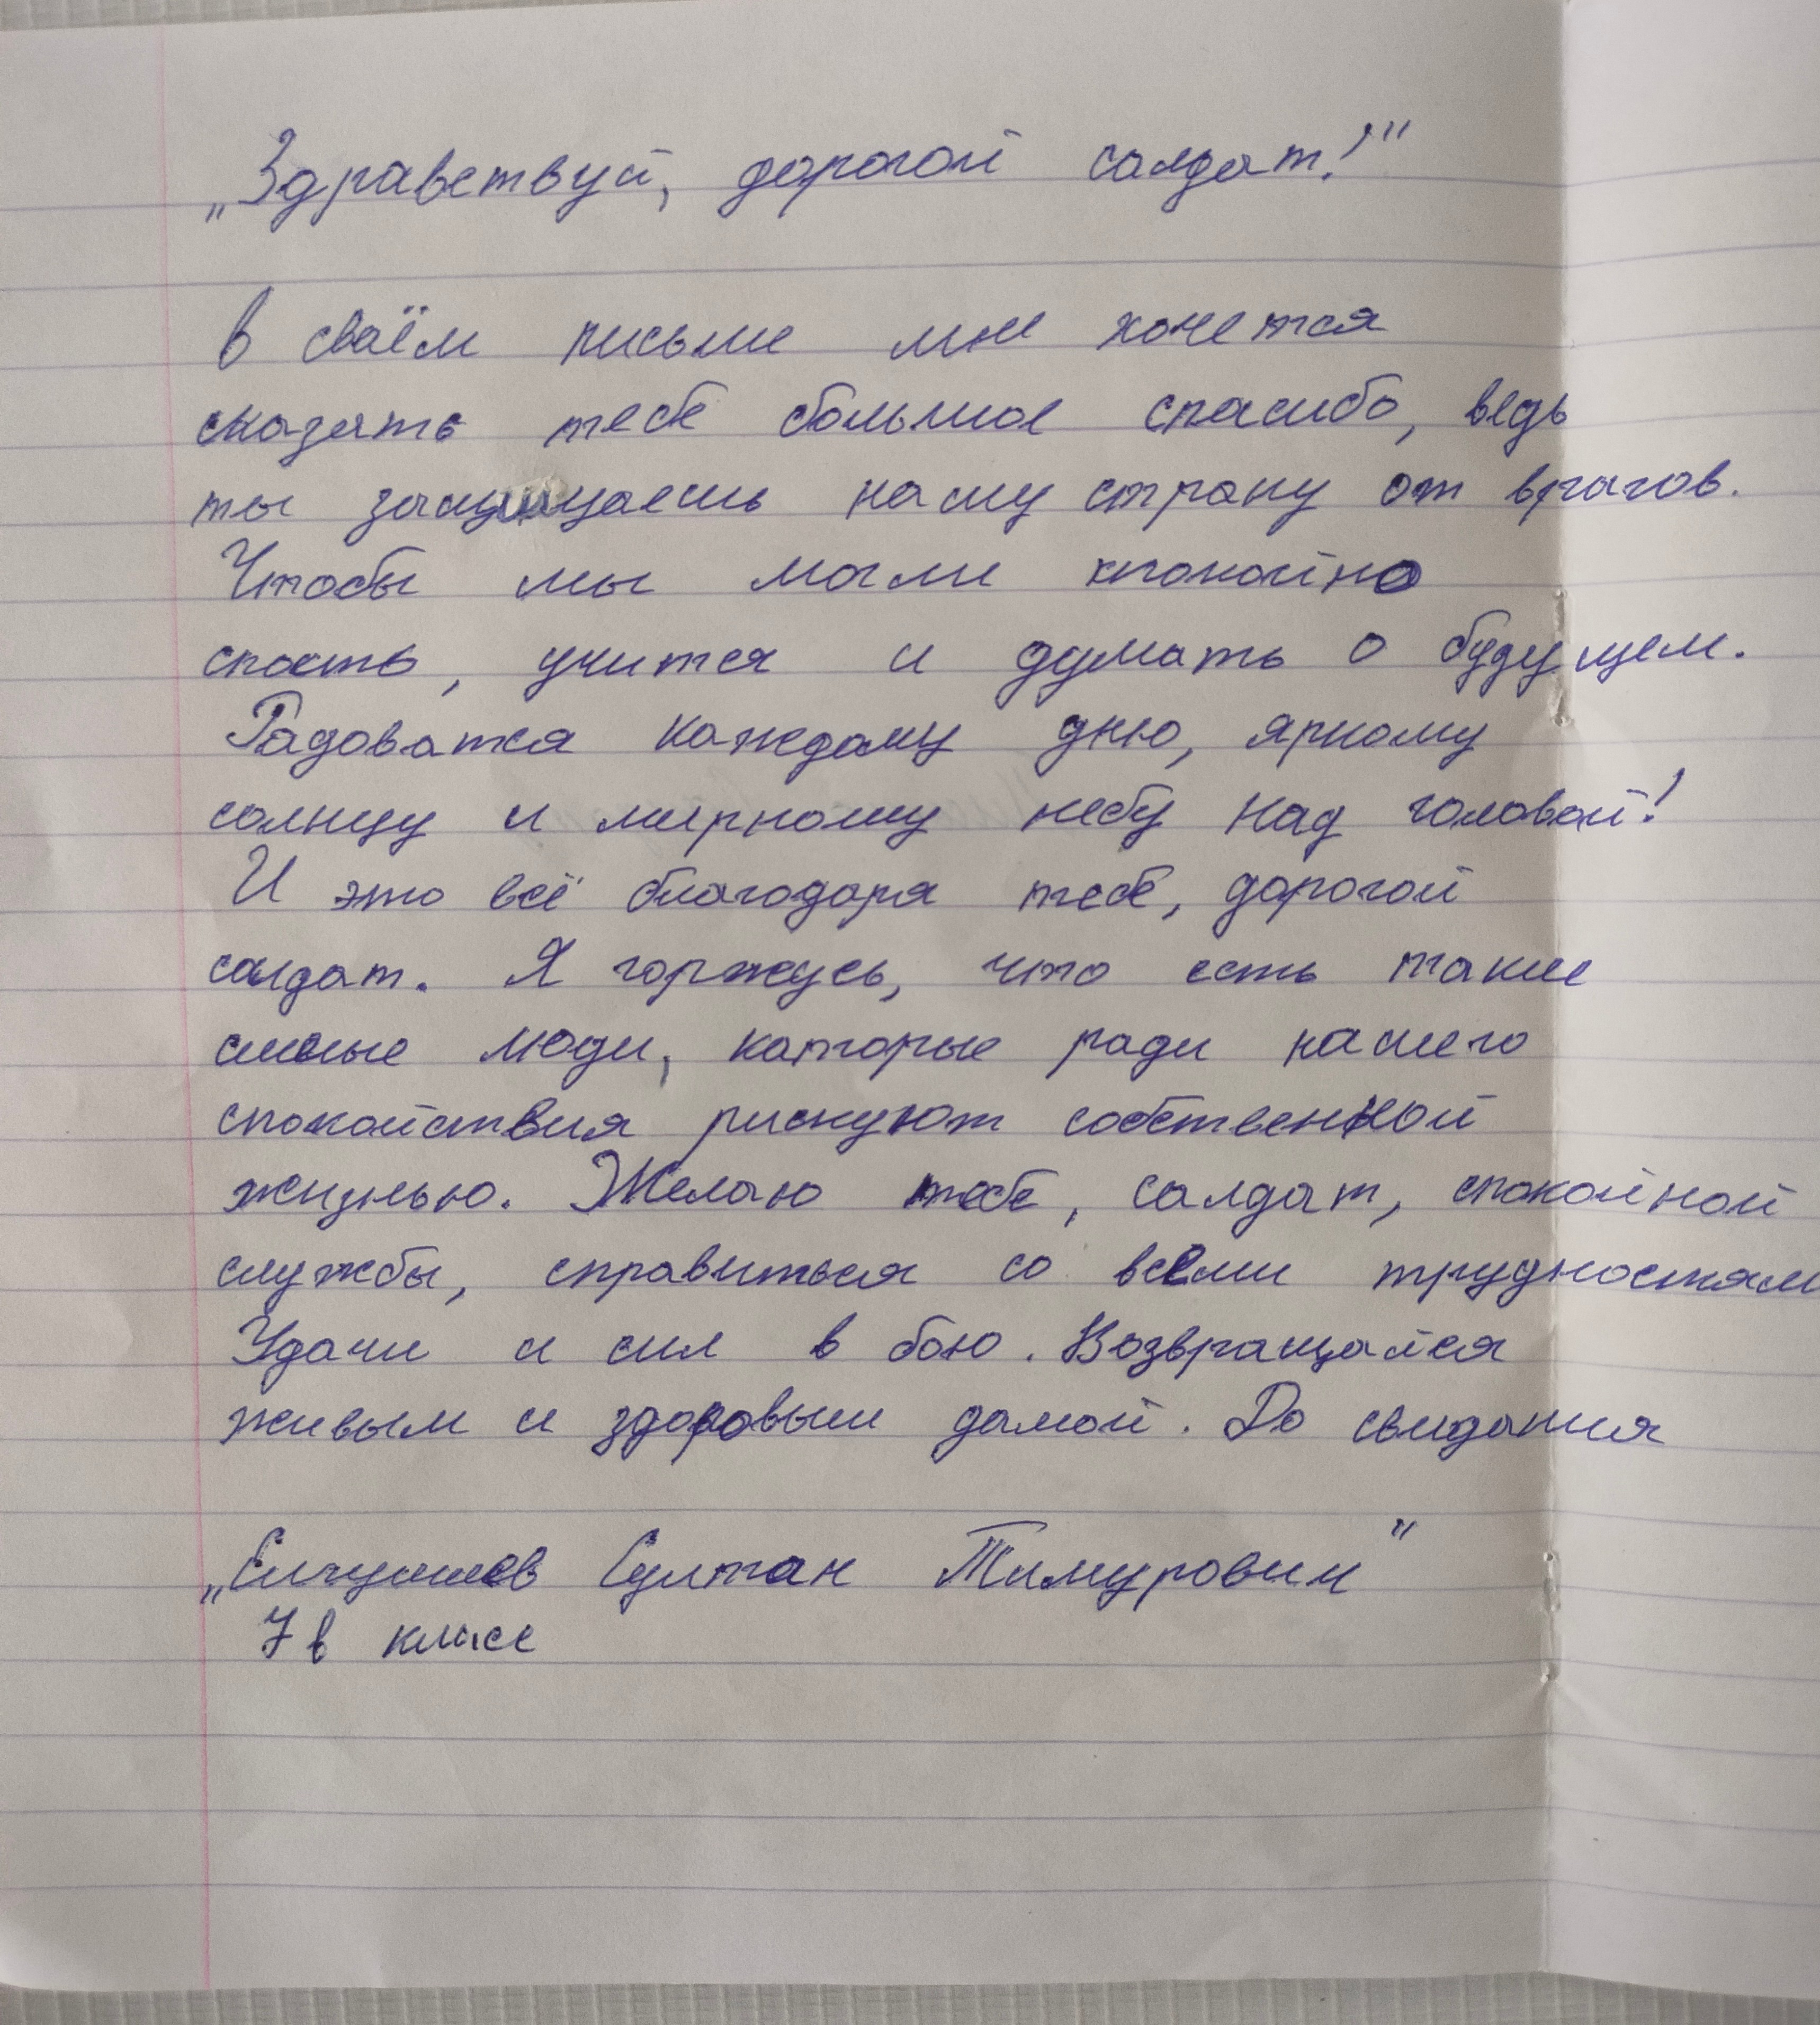 „Здравствуй, дорогой солдат!"
В своём письме мне хочется
сказать тебе большое спасибо, ведь
ты защищаешь нашу страну от врагов.
Чтобы мы могли спокойно
спать, учится и думать о будущем.
Радоватся каждому дню, яркому
солнцу и мирному небу над головой!
И это всё благодаря тебе, дорогой
солдат. Я горжусь, что есть такие
смелые люди, которые ради нашего
спокойствия рискуют собственной
жизнью. Желаю тебе, солдат, спокойной
службы, справиться со всеми трудностям
Удачи и сил в бою. Возвращайся
живым и здоровым домой. До свидания
Султан Тимурович"
7 в класс